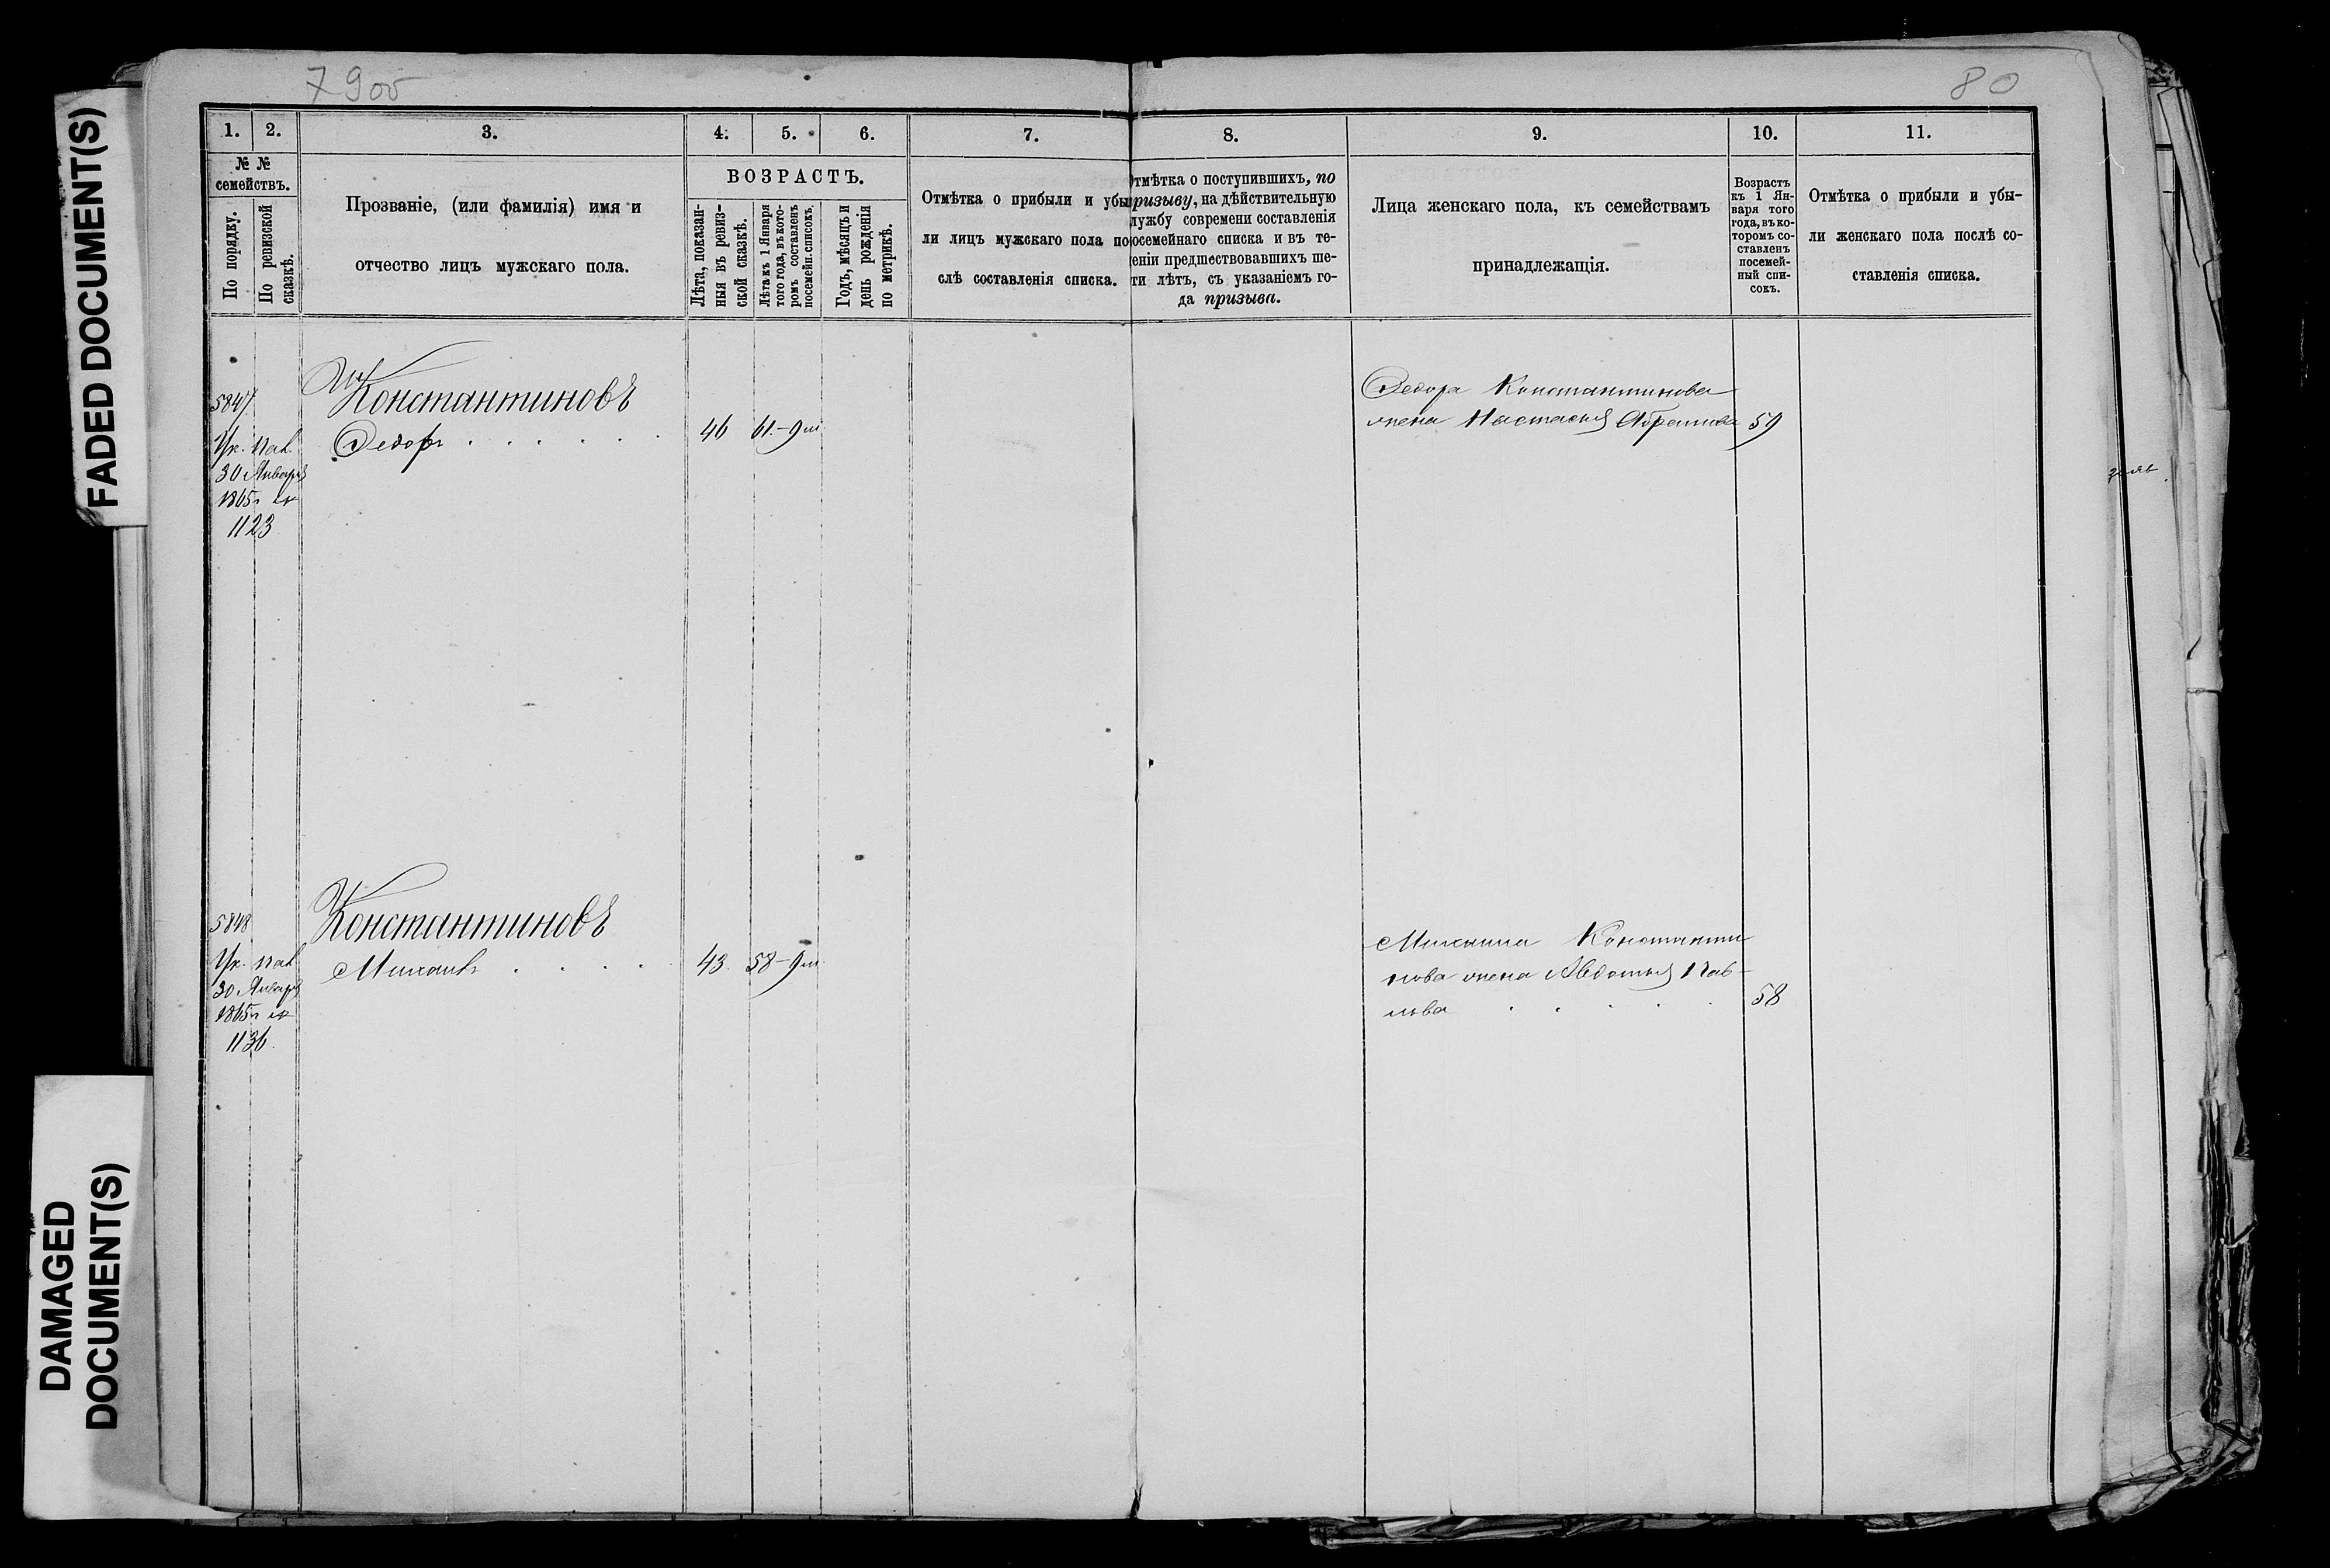 79об
80
FADED DOCUMENT(S)
DAMAGED
DOCUMENT(S)
1. 2. 3. 4. 5. 6. 7. 8. 9. 10. 11.
№ №
семействъ.
По порядку.
По ревизской
сказкѣ.
Прозваніе, (или фамилія) имя и
отчество лицъ мужскаго пола.
ВОЗРАСТЪ.
Лѣта, показан-
ныя въ ревиз-
ской сказкѣ.
Лѣта къ 1 Января
того года, въ кото-
ромъ составленъ
посемейн. списокъ.
Годъ, мѣсяцъ и
день рожденія
по метрикѣ.
Отмѣтка о прибыли и убы
ли лицъ мужскаго пола по
слѣ составленія списка.
тмѣтка о поступившихъ, по
призыву, на дѣйствительную
лужбу современи составленія
осемейнаго списка и въ те-
еніи предшествовавшихъ ше-
ти лѣтъ, съ указаніемъ го-
да призыва.
Лица женскаго пола, къ семействамъ
принадлежащія.
Возрастъ
къ 1 Ян-
варя того
года, въ ко-
торомъ со-
ставленъ
посемей-
ный спи-
сокъ.
Отмѣтка о прибыли и убы-
ли женскаго пола послѣ со-
ставленія списка.
5847
Константиновъ
Ук. пал.
Федоръ 46 61-9м
30 Января
1865г
1123
Федора Константинова
жена Настасья Абрамова 59
5848
Константиновъ
Ук. пал.
Михаилъ 43 58-9м
30 Января
1865г
1136
Михаила Константи
нова жена Авдотья Пав-
лова 58